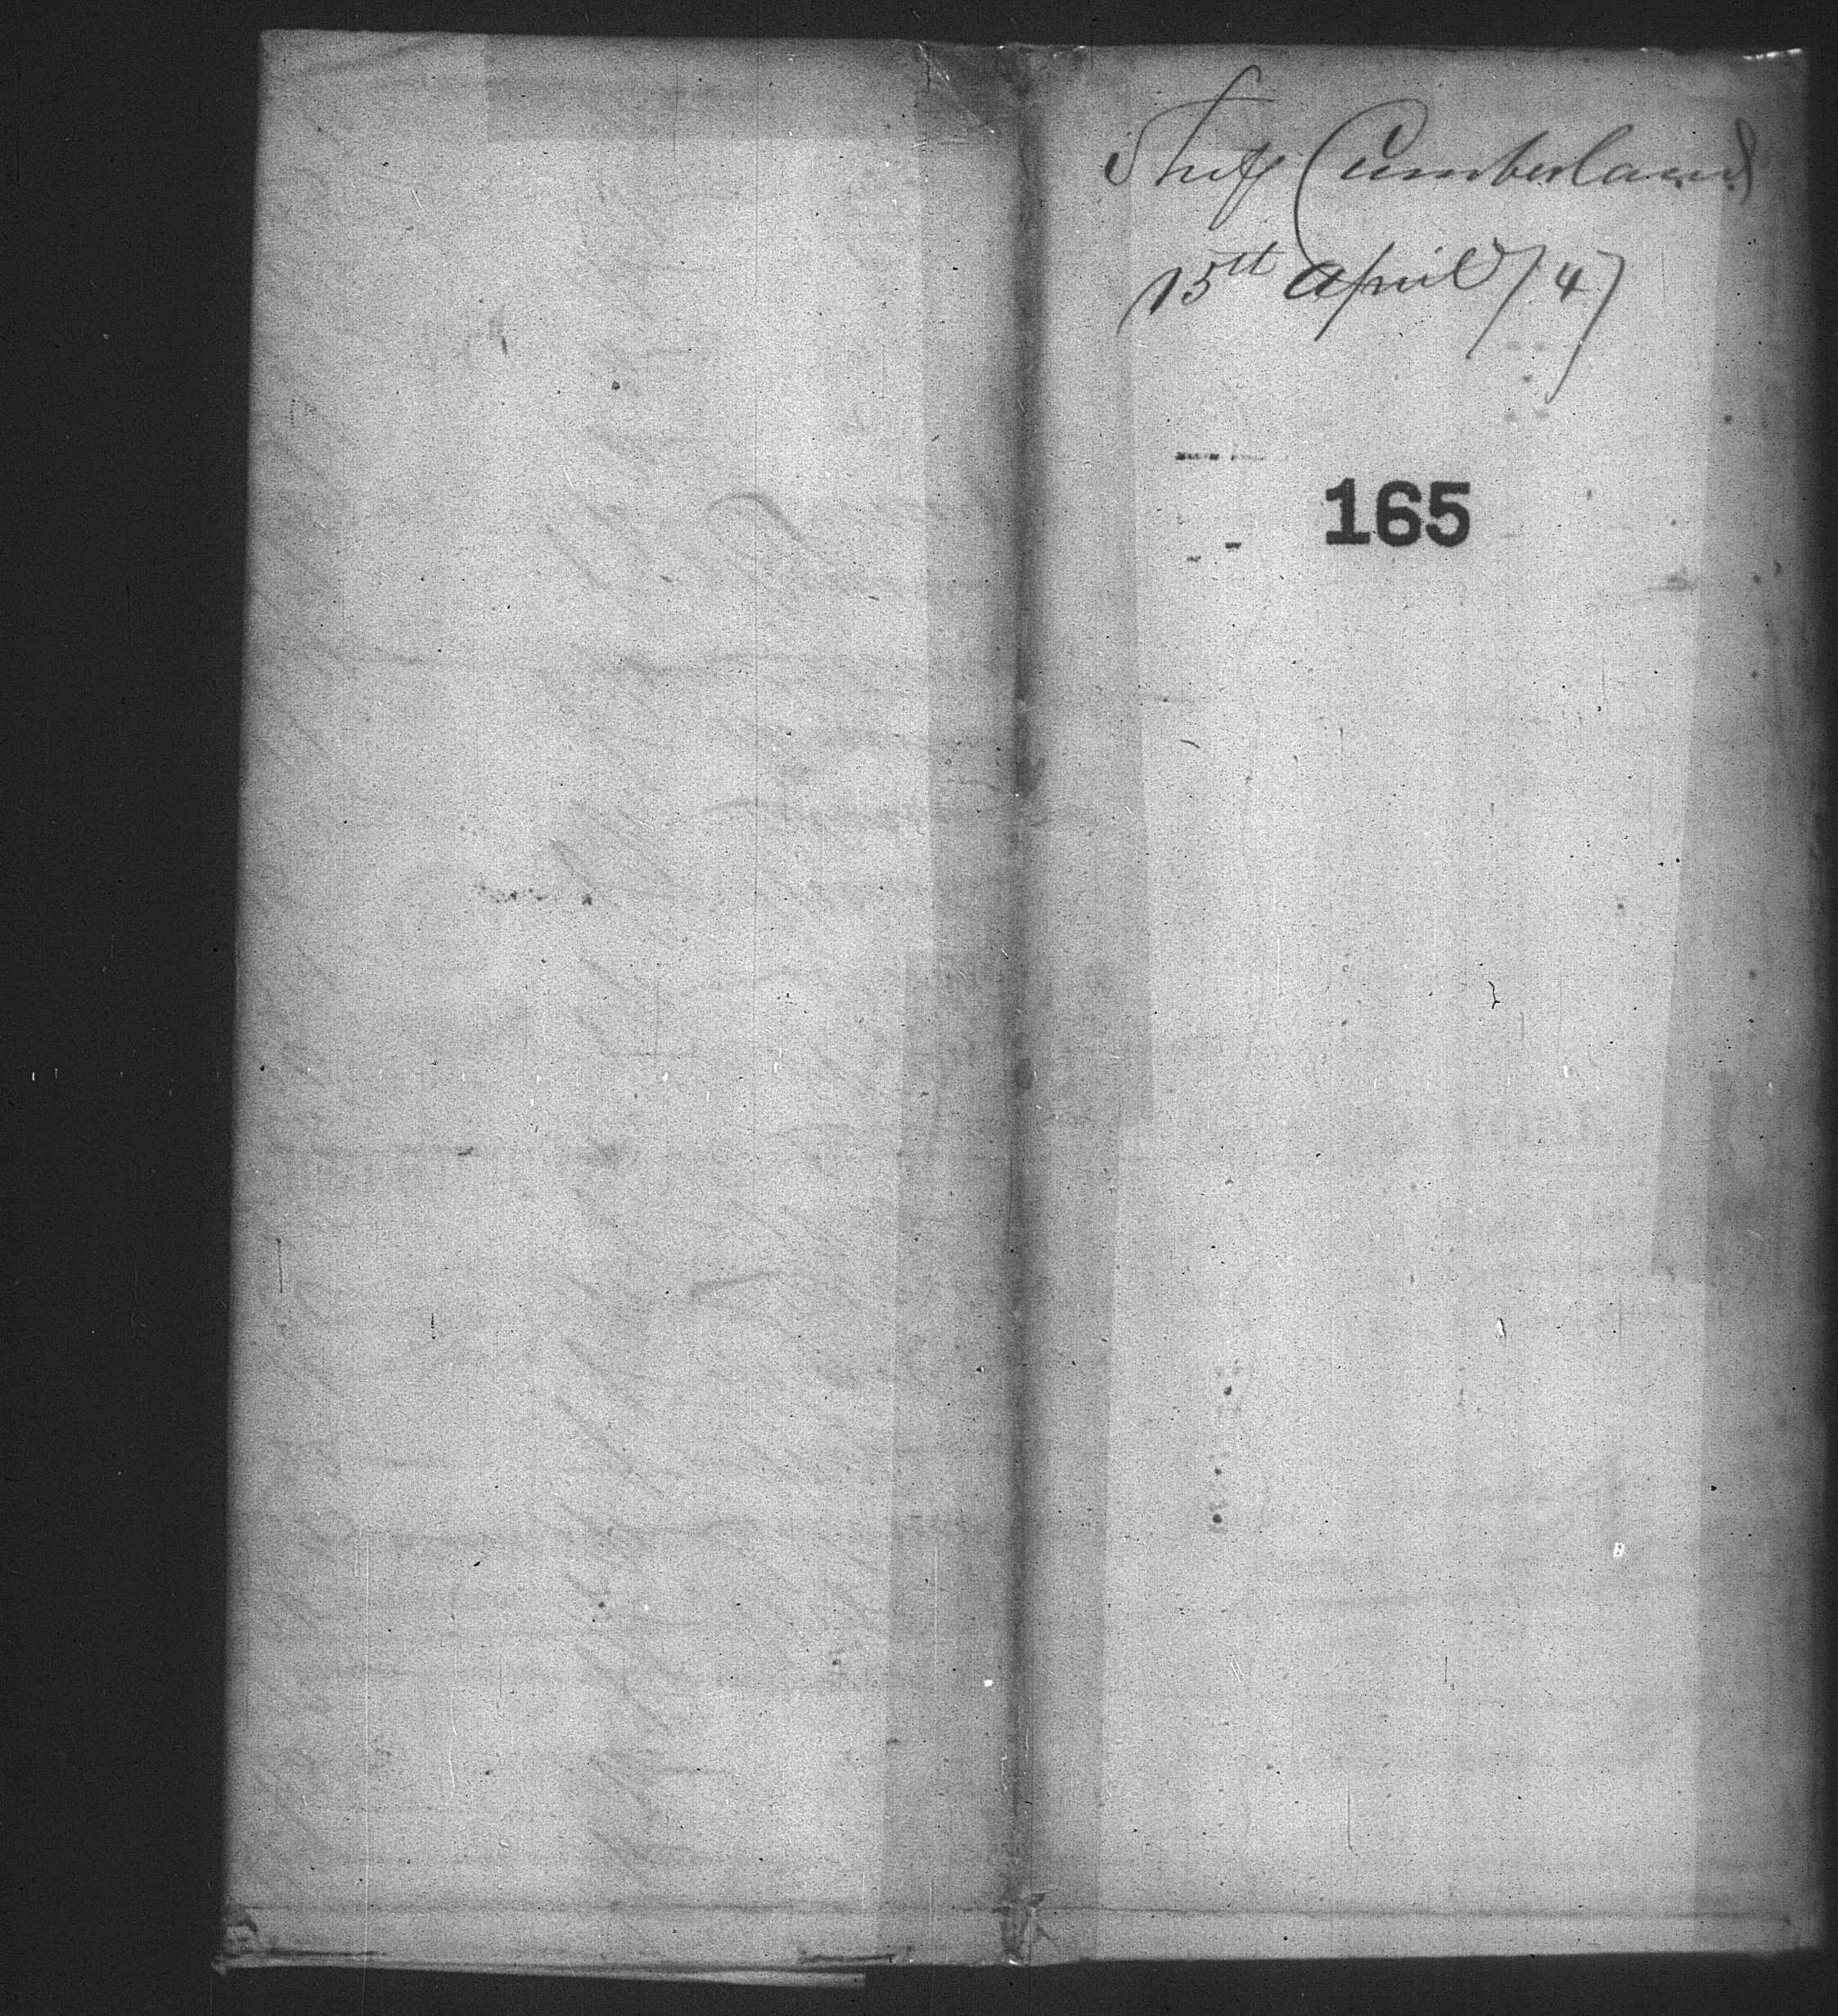 Ship Cumberland
15th April / 47
165